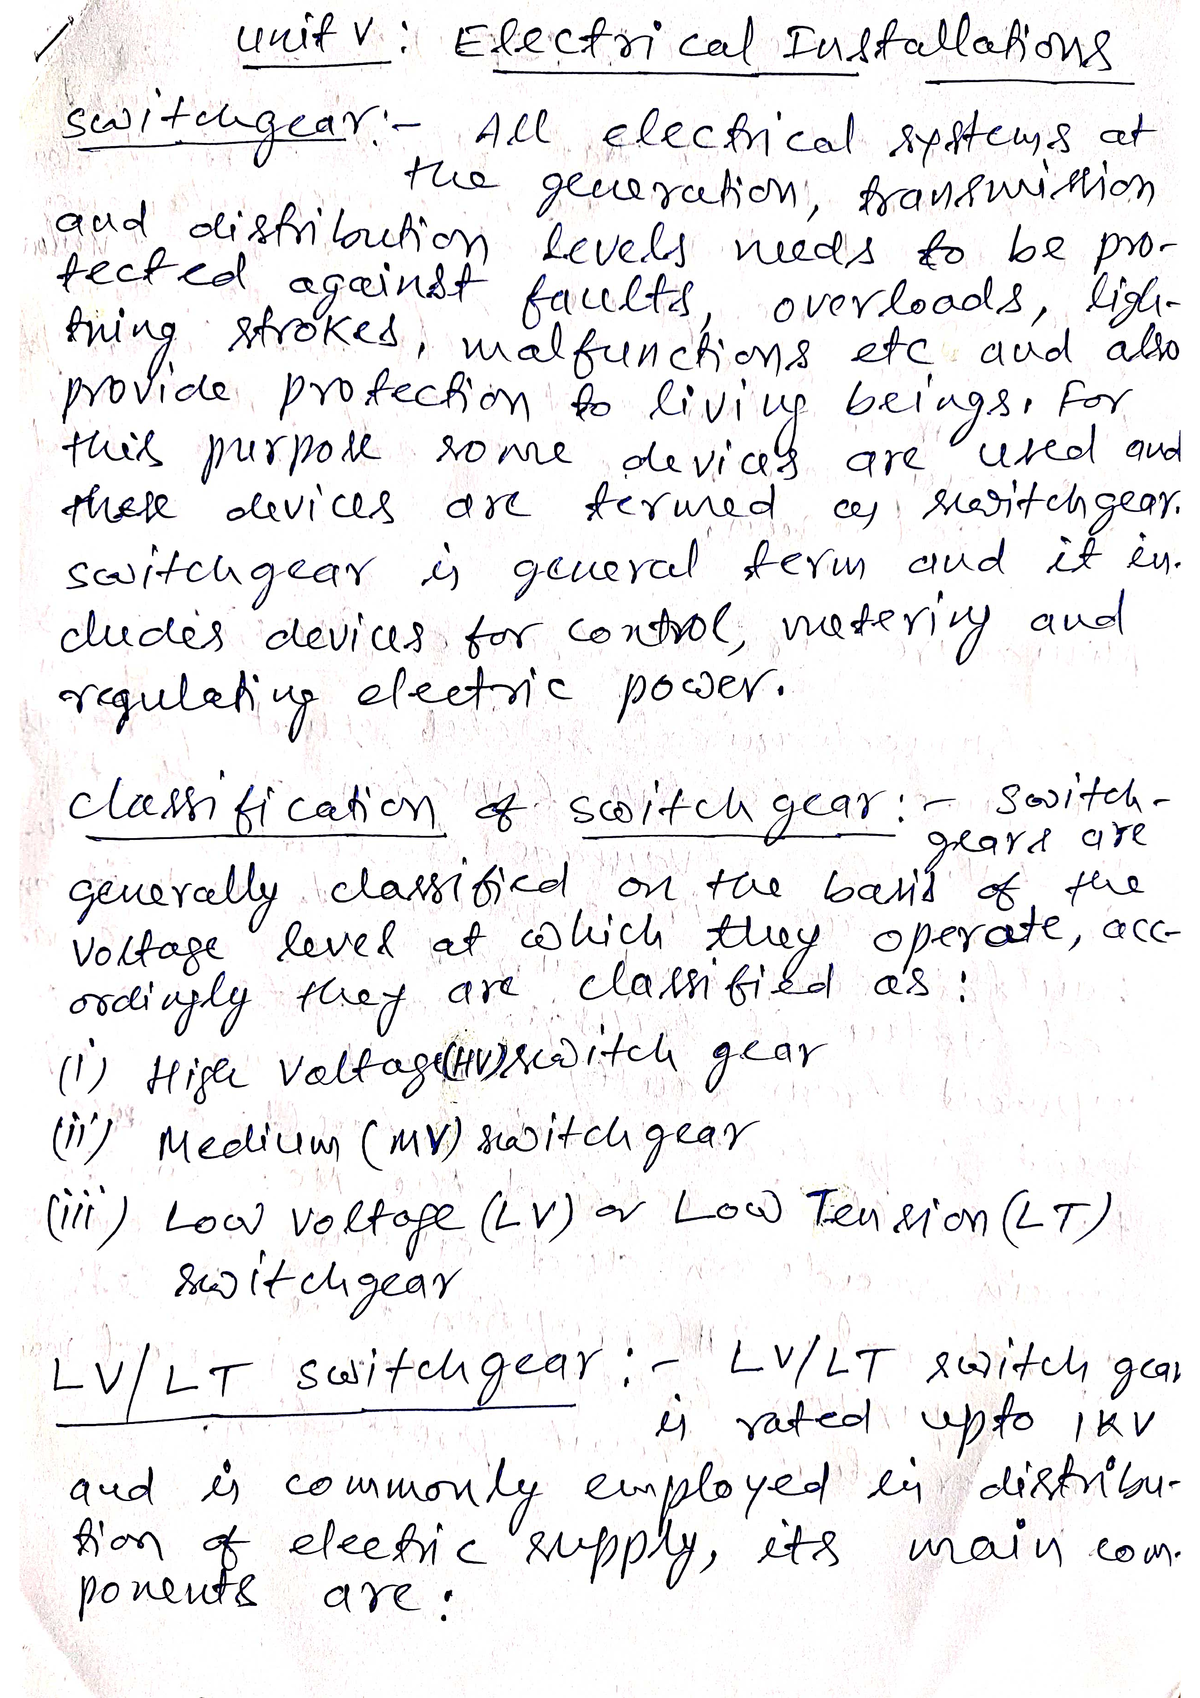 Unit V : Electrical Installations
Switchgear:- All electrical systems at
the generation, transmission
and distribution levels needs to be pro-
tected against faults, overloads, ligh-
tning strokes, malfunctions etc and also
provide protection to living beings. For
this purpose some devices are used and
these devices are termed as switchgear.
Switchgear is general term and it in-
cludes devices for control, metering and
regulating electric power.
Classification of switch gear:- Switch-
gears are
generally classified on the basis of the
Voltage level at which they operate, acc-
ordingly they are classified as:
(i) High Voltage(HV)switch gear
(ii) Medium (MV) switchgear
(iii) Low Voltage (LV) or Low Tension (LT)
switchgear
LV/LT Switchgear:- LV/LT switch gear
is rated upto 1KV
and is commonly employed in distribu-
tion of electric supply, its main com-
ponents are: